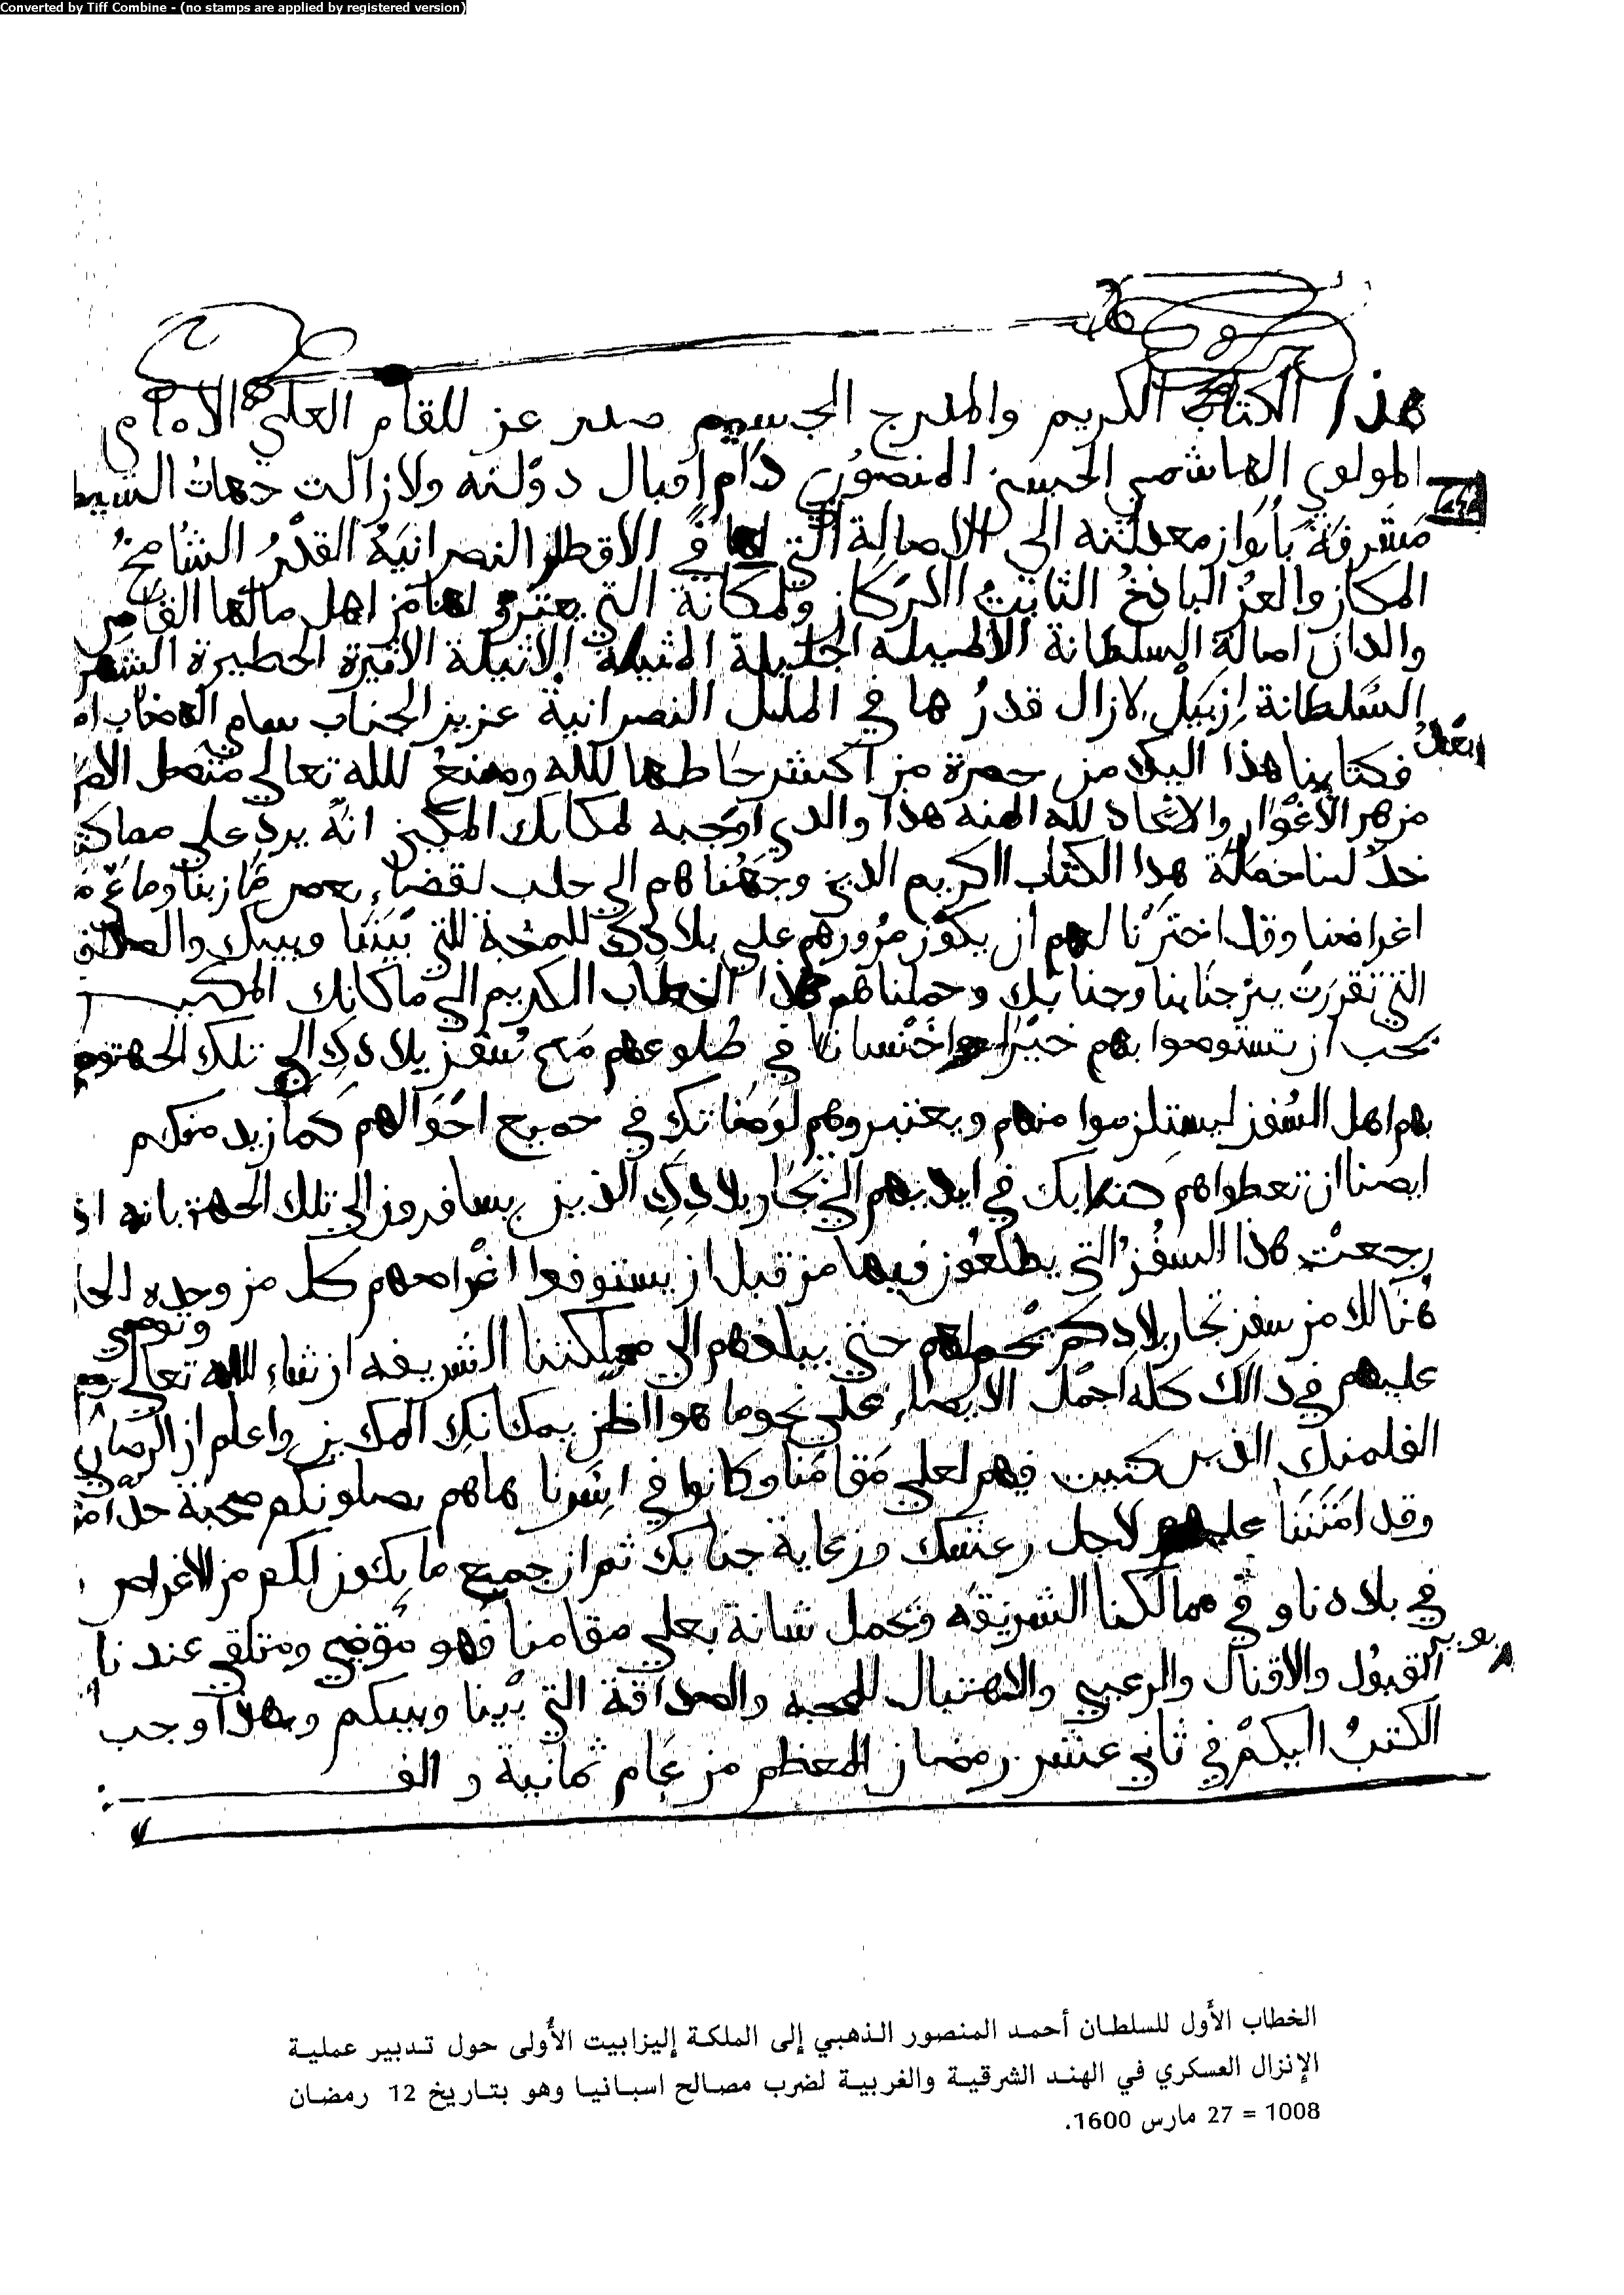 Converted by Tiff Combine - (no stamps are applied by registered version)
هذا الكتاب الكريم والمدرج الجسيم صدر عن المقام العلي الامامي
المولوي الهاشمي الحسني المنصوري دام اقبال دولته ولا زالت جهات
مشرفة بأنوار معدلته الى الاصالة التي لها في الاقطار النصرانية القدر الشامخ
المكان والعز الباذخ الثابت الاركان والمكانة التي يعترف لها من اهل ملتها القاصي
والدان اصالة السلطانة الاصيلة الجليلة المثيلة الاثيلة الاثيرة الخطيرة
السلطانة إزبيل لا زال قدرها في الملل النصرانية عزيز الجناب سام
فكتابنا هذا اليك من حضرة مراكش حاطها الله وصنع الله تعالى متصل
والانجاد لله المنة هذا والذي اوجبه لمكانك المكين انه يرد على
خدامنا حملة هذا الكتاب الكريم الذين وجهناهم الى حلب لقضاء بعض مآربنا وما
اغراضنا وقد اخترنا لهم ان يكون مرورهم على بلادك للمحبة التي بيننا وبينك
التي تقررت بين جنابنا وجنابك وحملناهم هذا الخطاب الكريم الى مكانك المكين
نحب ان تستوصوا بهم خيرا واحسانا في طلوعهم مع سفن بلادك الى تلك الجهة
بهم اهل السفن ليستلزموا منهم ويعتبروهم لوصاتك في جميع احوالهم كما نريد منكم
ايضا ان تعطواهم كتابك في ايديهم الى تجار بلادك الذين يسافرون الى تلك الجهة بانه
رجعت هذا السفن التي يطلعون فيها من قبل ان يستوفوا اغراضهم كل من وجده
هنالك من سفن تجار بلادكم يحملهم حتى يبلغهم الى مملكتنا الشريفة ان شاء الله تعالى وتوصي
عليهم في ذالك كله اجمل الايصاء على نحو ما هو الظن بمكانك المكين واعلم ان
الفلمنك الذين كتبت فيهم لعلي مقامنا وكانوا في اسرنا هاهم يصلونكم صحبة
وقد امتننا عليهم لاجل رغبتك ورعاية جنابك ثم ان جميع ما يكون لكم من الاغراض
في بلادنا وفي ممالكنا الشريفة وتحمل شانه بعلي مقامنا فهو مقضي ومتلقى عندنا
القبول والاقبال والرعي والاهتبال للمحبة والصداقة التي بيننا وبينكم وبهذا وجب
الكتب اليكم في ثاني عشر رمضان المعظم من عام ثمانية والف
الخطاب الأول للسلطان أحمد المنصور الذهبي إلى الملكة إليزابيت الأولى حول تدبير عملية
الإنزال العسكري في الهند الشرقية والغربية لضرب مصالح اسبانيا وهو بتاريخ 12 رمضان
1008 = 27 مارس 1600.